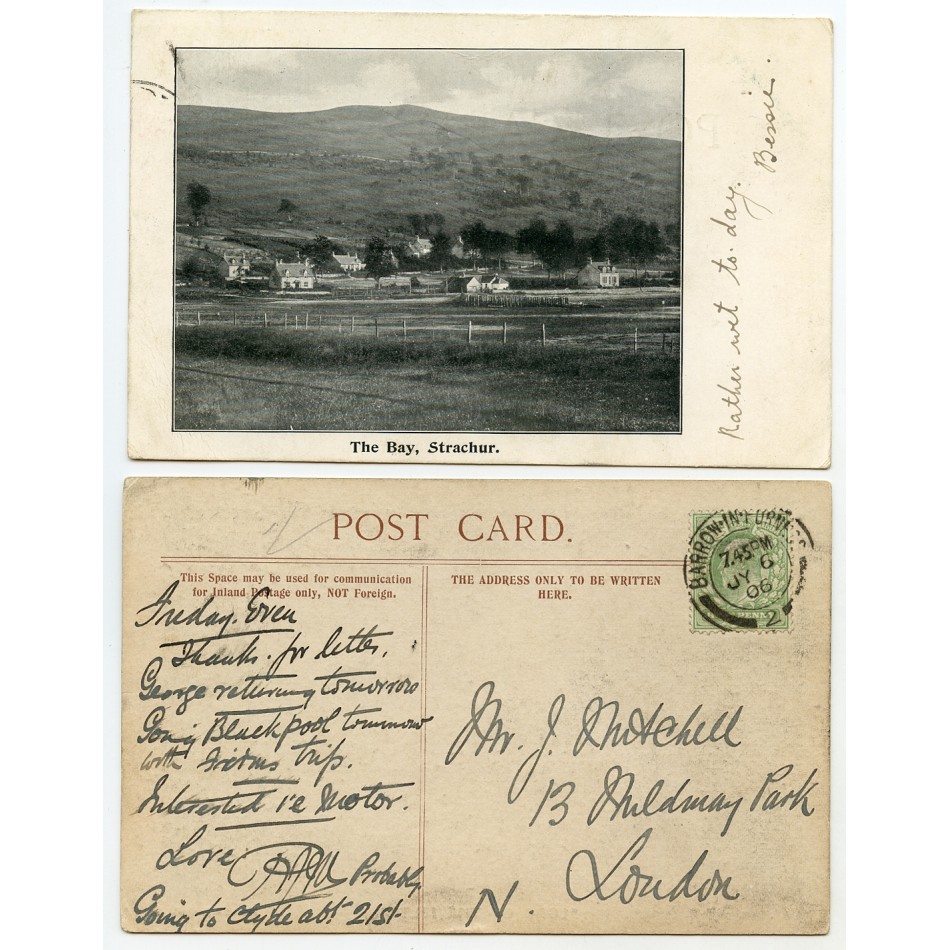 Rather wet to-day.
Bessie.
The Bay, Strachur.
POST CARD.
This Space may be used for communication
for Inland Postage only, NOT Foreign.
THE ADDRESS ONLY TO BE WRITTEN
HERE.
BARROW-IN-FURNESS
7.45PM
JY 6
06
2
Friday. Even
Thanks. for letter.
George returning tomorrow
Going Blackpool tomorrow
with trip.
Interested i.e Motor.
Love
Probably
Going to Clyde abt 21st
Mr. J. Mitchell
13 Mildmay Park
London
N.